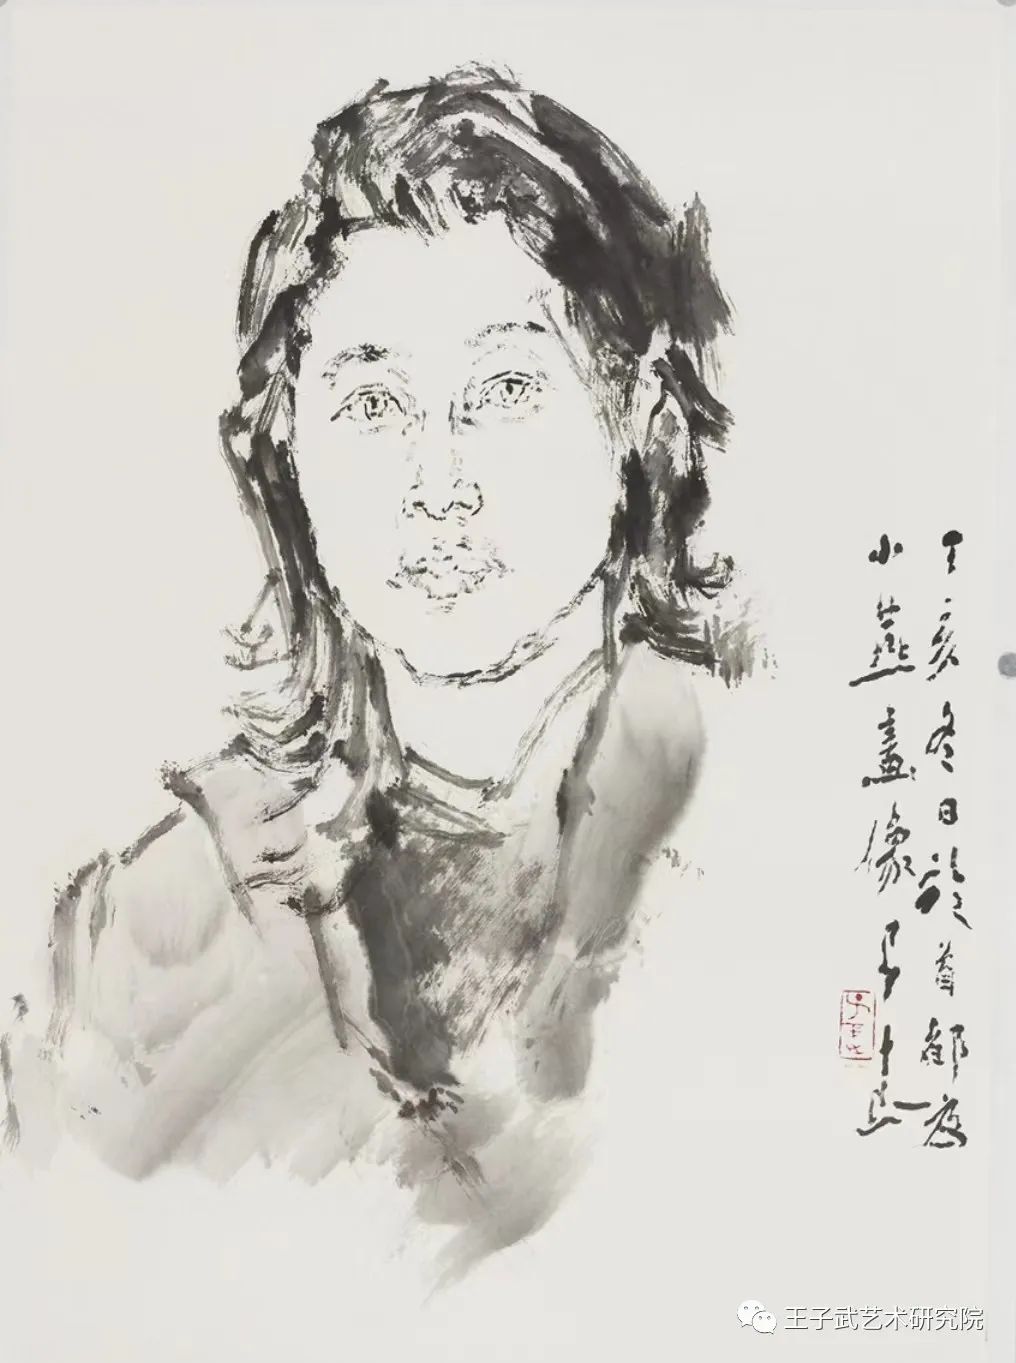 丁亥冬日於首都为
小燕画像子武
王子武艺术研究院